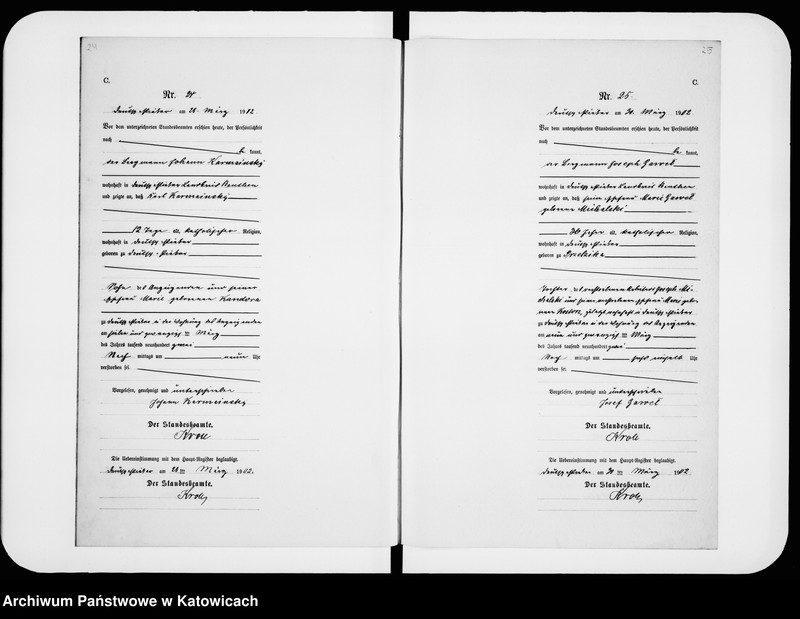 24
C.
Nr. 24
am 28. März 1902.
Vor dem unterzeichneten Standesbeamten erschien heute, der Persönlichkeit
nach
kannt,
der Bergmann Johann
wohnhaft in Deutsch Piekar Landkreis Beuthen
und zeigte an, daß Karl
12 Tage alt, katholischer Religion,
wohnhaft in Deutsch Piekar
geboren zu Deutsch-Piekar
Sohn des Anzeigenden und seiner
Ehefrau Marie geborenen Kandora
zu Deutsch Piekar in der Wohnung des Anzeigenden
am und zwanzigsten März
des Jahres tausend neunhundert zwei
Nach mittags um neun Uhr
verstorben sei.
Vorgelesen, genehmigt und unterschrieben
Johann
Der Standesbeamte.
Kroll
Die Uebereinstimmung mit dem Haupt-Register beglaubigt.
Deutsch Piekar am 28ten März 1902.
Der Standesbeamte.
Kroll
25
C.
Nr. 25.
Deutsch Piekar am März 1902
Vor dem unterzeichneten Standesbeamten erschien heute, der Persönlichkeit
nach
kannt,
der Bergmann Joseph
wohnhaft in Deutsch Piekar Landkreis Beuthen
und zeigte an, daß seine Ehefrau Marie
geborene Michalski
36 Jahre alt, katholischer Religion,
wohnhaft in Deutsch Piekar
geboren zu
Tochter des verstorbenen Joseph Mi-
chalski und seiner verstorbenen Ehefrau Marie gebo-
renen zuletzt wohnhaft in Deutsch Piekar
zu Deutsch Piekar in der Wohnung des Anzeigenden
am neun und zwanzigsten März
des Jahres tausend neunhundert zwei
Nach mittags um sechs einhalb Uhr
verstorben sei.
Vorgelesen, genehmigt und unterschrieben
Josef
Der Standesbeamte.
Kroll
Die Uebereinstimmung mit dem Haupt-Register beglaubigt.
Deutsch Piekar am März 1902
Der Standesbeamte.
Kroll
Archiwum Państwowe w Katowicach